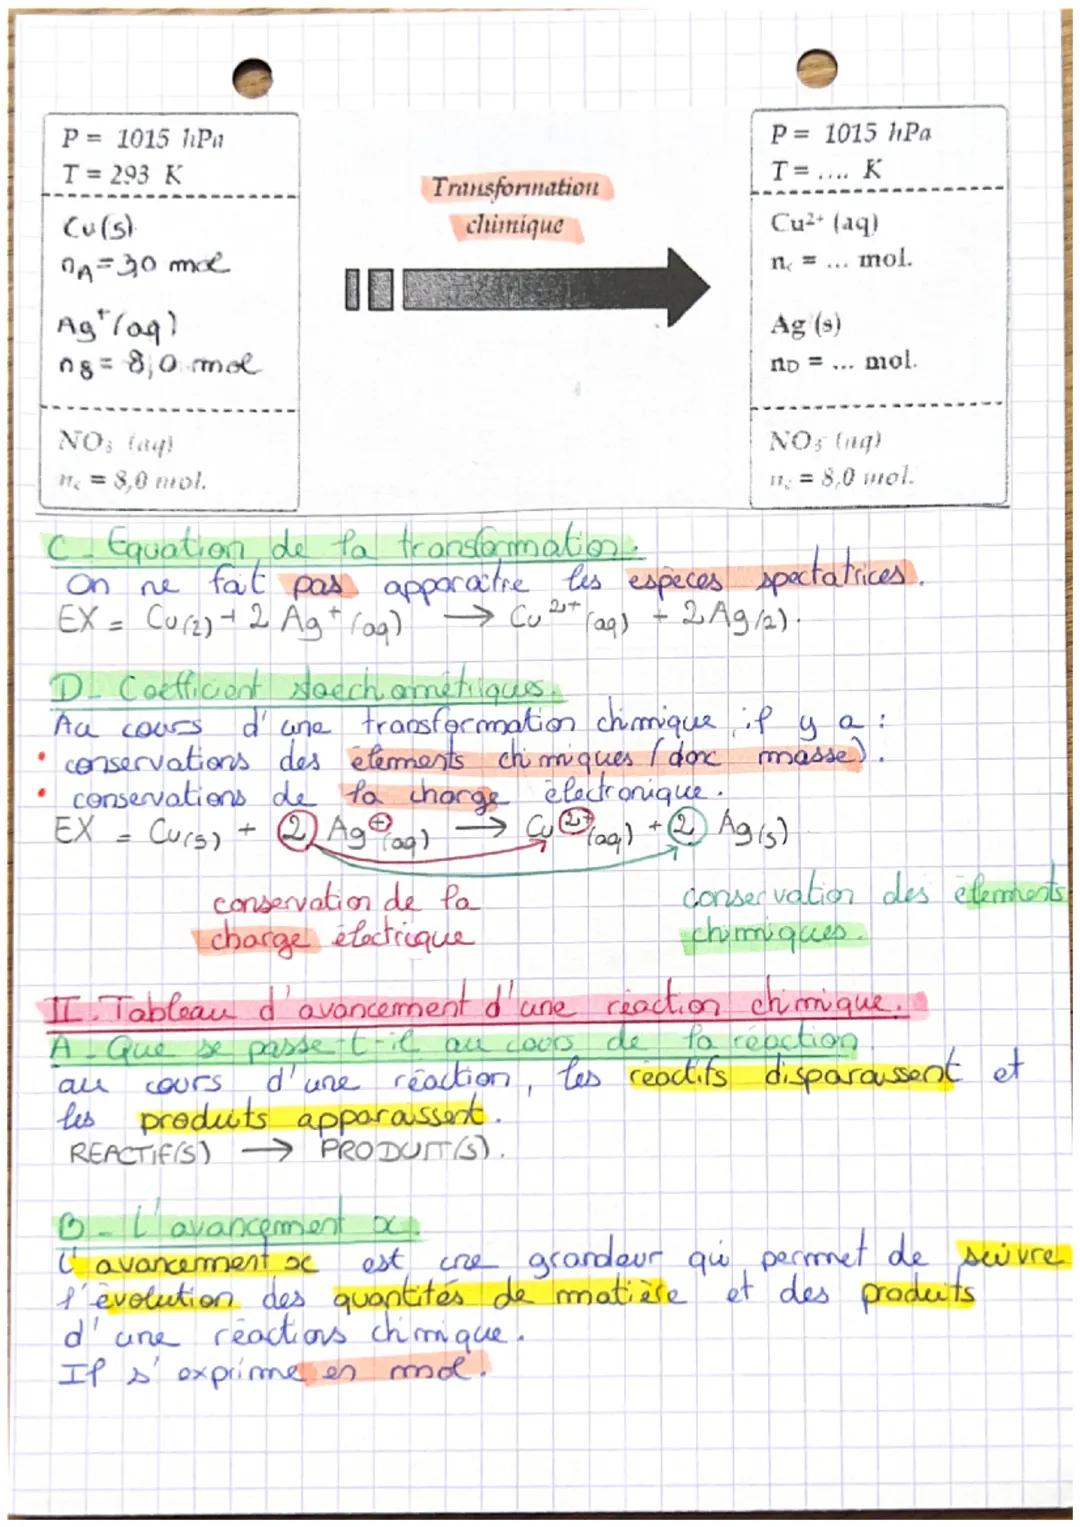 P = 1015 hPa
T = 293 K
Cu(s)
nA = 3,0 mol
Ag⁺(aq)
nB = 8,0 mol
NO₃ (aq)
nc = 8,0 mol.
Transformation
chimique
P = 1015 hPa
T = .... K
Cu²⁺ (aq)
nc = ... mol.
Ag (s)
nD = ... mol.
NO₃ (aq)
nc = 8,0 mol.
C - Equation de la transformation.
On ne fait pas apparaitre les espèces spectatrices.
EX = Cu(2) + 2 Ag⁺(aq) → Cu²⁺(aq) + 2 Ag(2).
D - Coefficient stoechamétriques.
Au cours d'une transformation chimique, il y a :
• conservations des éléments chimiques (donc masse).
• conservations de la charge électronique.
EX = Cu(s) + 2 Ag⁺(aq) → Cu²⁺(aq) + 2 Ag(s)
conservation de la
charge électrique
conservation des éléments
chimiques.
II. Tableau d'avancement d'une réaction chimique.
A - Que se passe-t-il au cours de la réaction
au cours d'une réaction, les réactifs disparaissent et
les produits apparaissent.
REACTIF(S) → PRODUIT(S).
B - L'avancement x.
L'avancement x est une grandeur qui permet de suivre
l'évolution des quantités de matière et des produits
d'une réactions chimique.
Il s'exprime en mol.